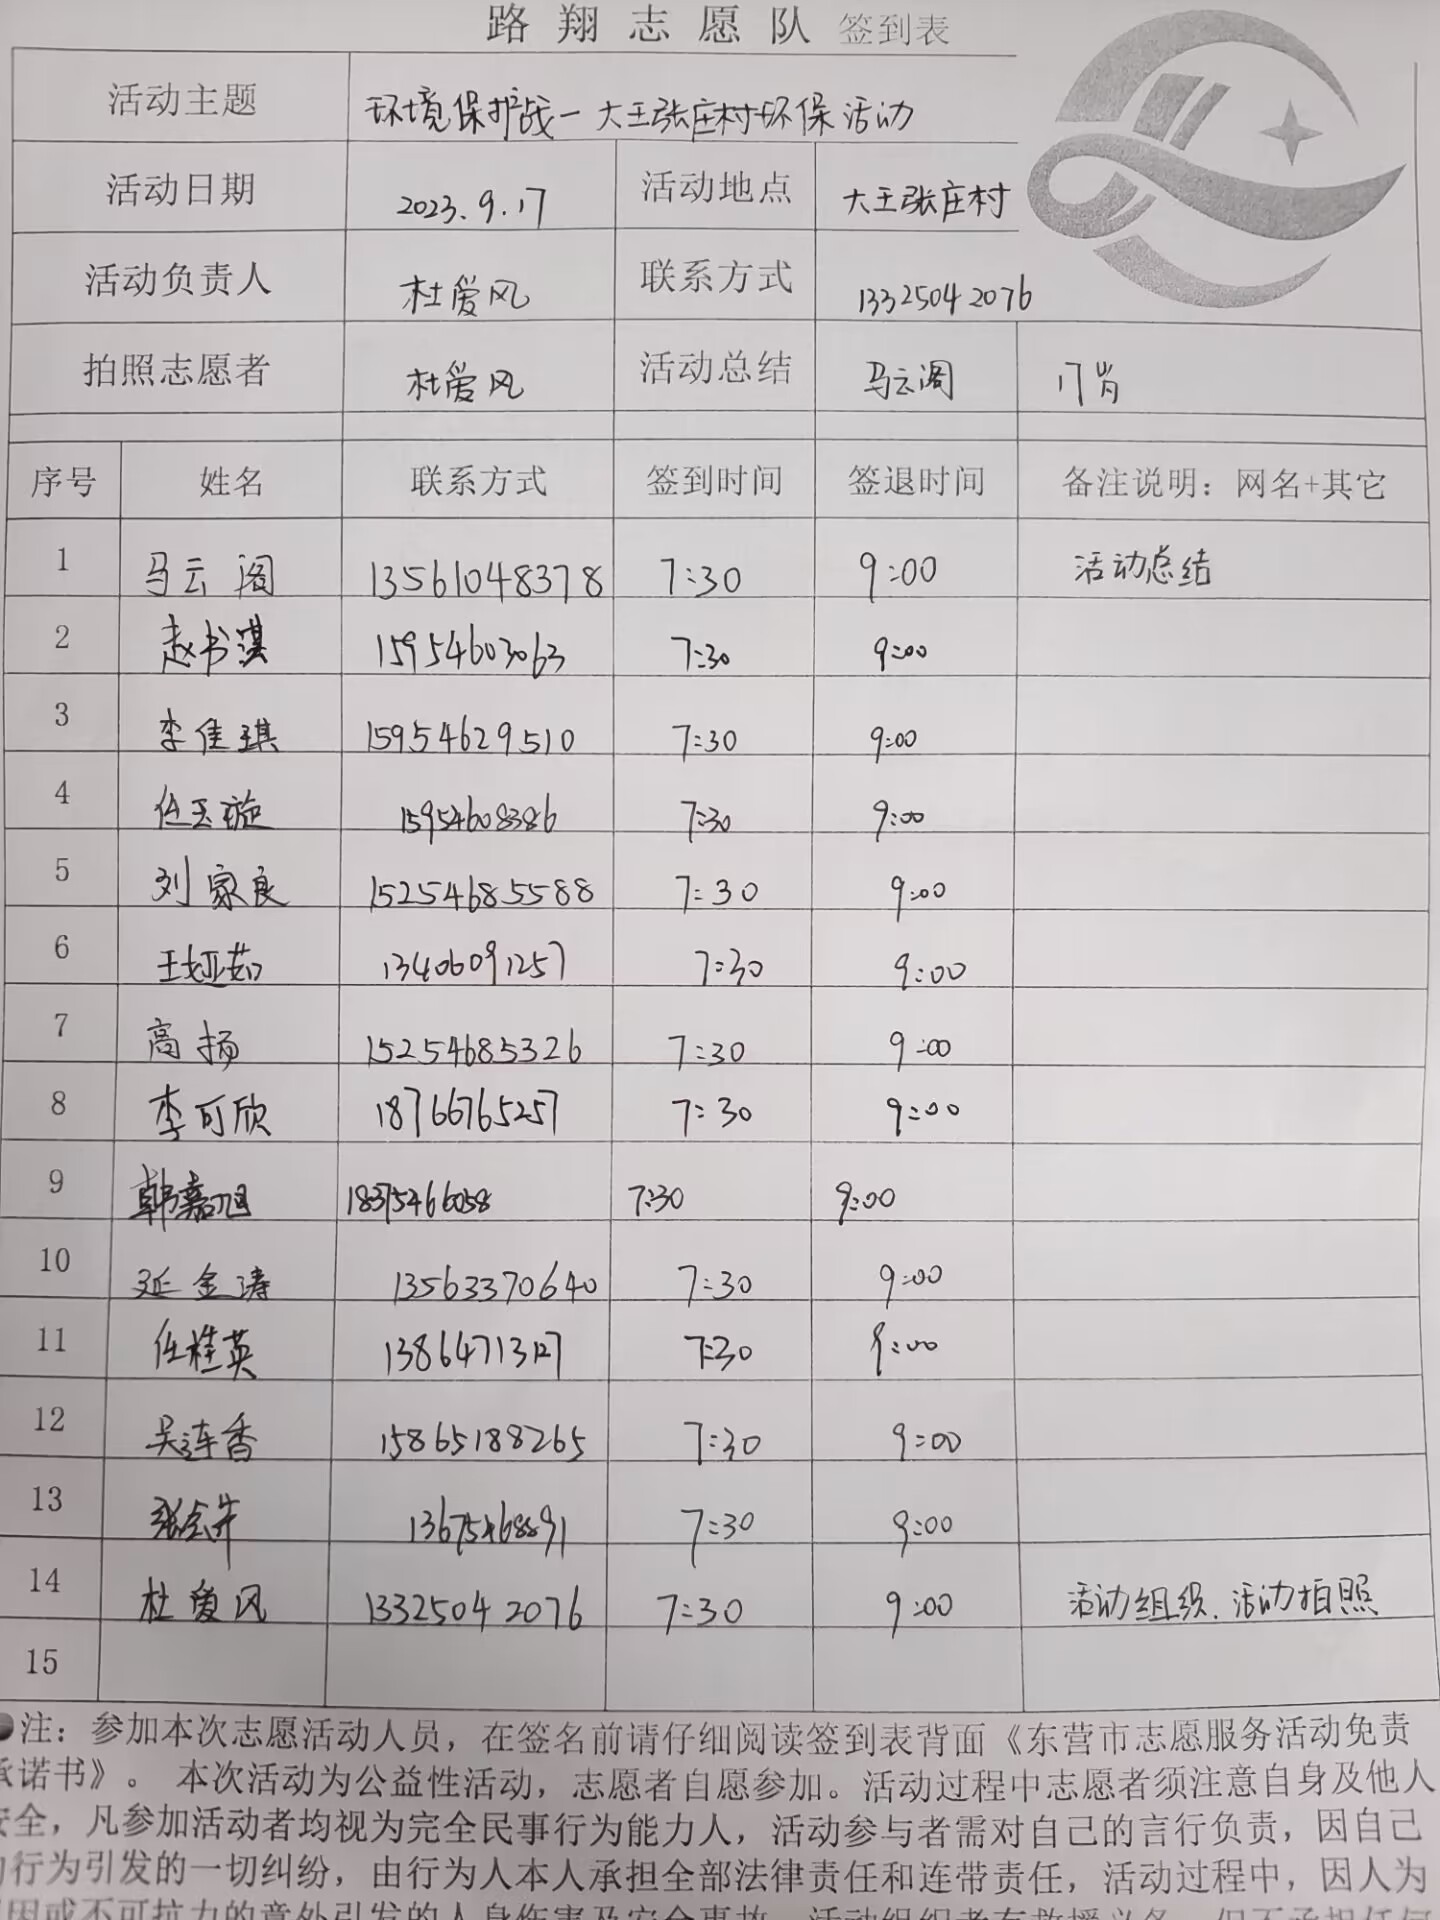 路翔志愿队 签到表
活动主题 环境保护战一大王张庄村环保活动
活动日期 2023.9.17 活动地点 大王张庄村
活动负责人 杜爱风 联系方式 13325042076
拍照志愿者 杜爱风 活动总结 马云阁
序号 姓名 联系方式 签到时间 签退时间 备注说明：网名+其它
1 马云阁 13561048378 7:30 9:00 活动总结
2 赵书淇 15954603063 7:30 9:00
3 李佳琪 15954629510 7:30 9:00
4 任玉璇 15954608386 7:30 9:00
5 刘家良 15254685588 7:30 9:00
6 王娅茹 13406091257 7:30 9:00
7 高扬 15254685326 7:30 9:00
8 李可欣 18766765257 7:30 9:00
9 韩嘉旭 7:30 9:00
10 延金涛 13563370640 7:30 9:00
11 任桂英 13864713127 7:30 9:00
12 吴连香 15865188265 7:30 9:00
13 13675468891 7:30 9:00
14 杜爱风 13325042076 7:30 9:00 活动组织、活动拍照
15
注：参加本次志愿活动人员，在签名前请仔细阅读签到表背面《东营市志愿服务活动免责
承诺书》。 本次活动为公益性活动，志愿者自愿参加。活动过程中志愿者须注意自身及他人
安全，凡参加活动者均视为完全民事行为能力人，活动参与者需对自己的言行负责，因自己
的行为引发的一切纠纷，由行为人本人承担全部法律责任和连带责任，活动过程中，因人为
原因或不可抗力的意外引发的人身伤害及安全事故，活动组织者有救援义务，但不承担任何